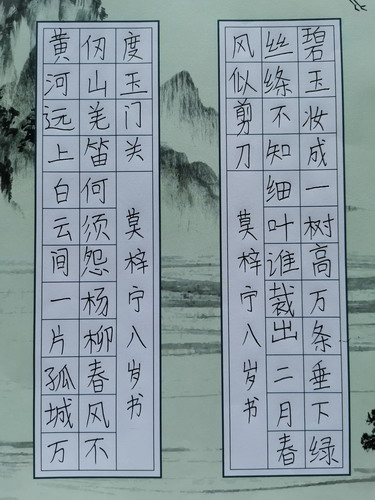 碧玉妆成一树高万条垂下绿
丝绦不知细叶谁裁出二月春
风似剪刀
莫梓宁八岁书
黄河远上白云间一片孤城万
仞山羌笛何须怨杨柳春风不
度玉门关
莫梓宁八岁书